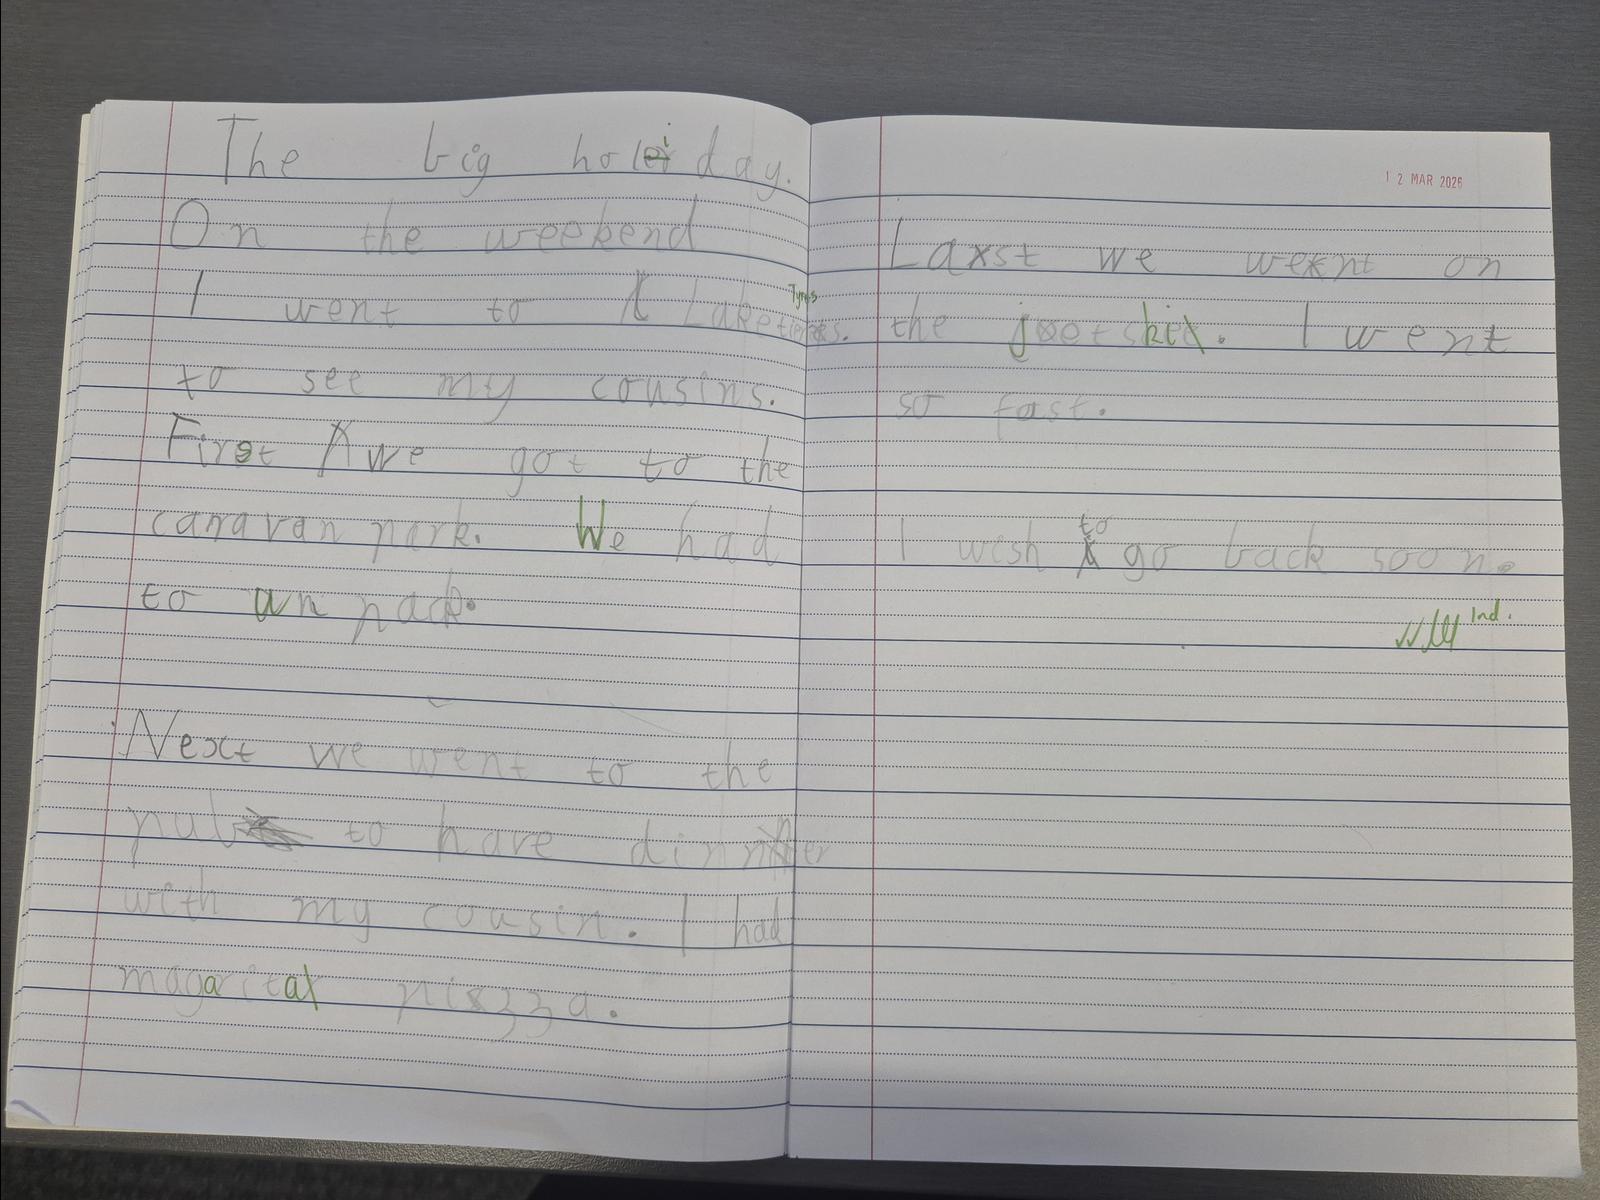 The big holiday.
On the weekend
I went to Lake Tyres.
to see my cousins.
First we got to the
caravan park. We had
to un pack.
Next we went to the
pub to have dinner
with my cousin. I had
magarita pizza.
12 MAR 2026
Last we went on
the jetski. I went
so fast.
I wish to go back soon.
Ind.